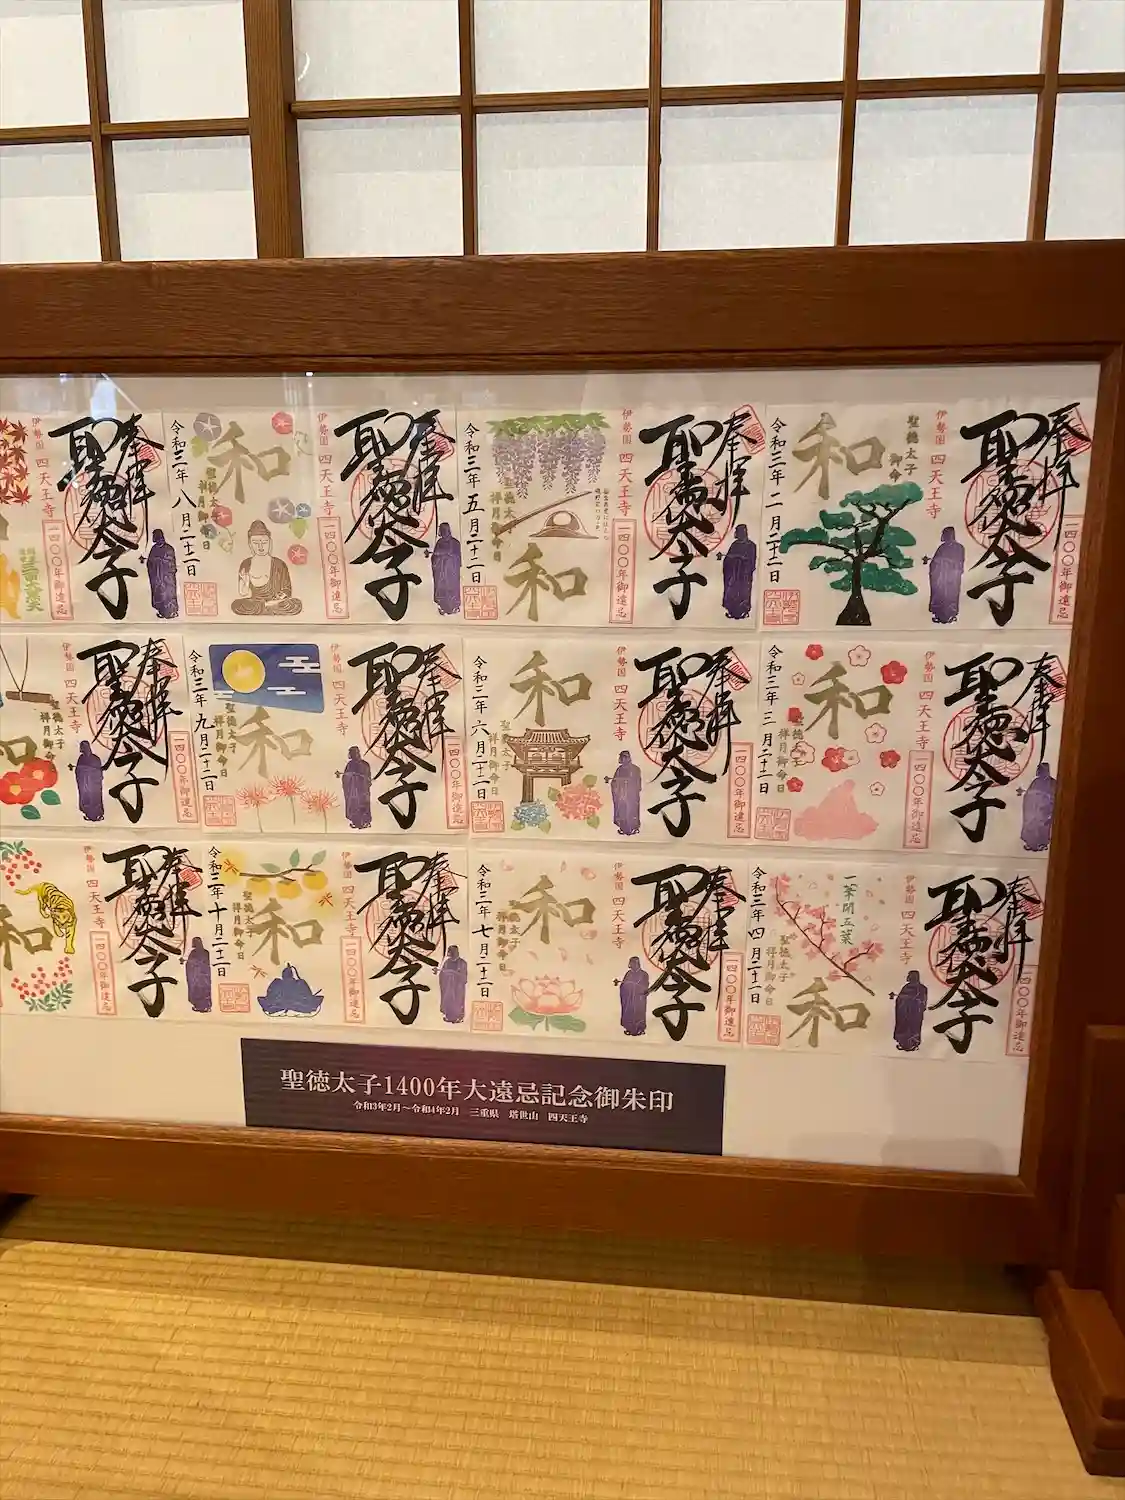 奉拝
聖徳太子
一四〇〇年御遠忌
伊勢国 四天王寺
聖徳太子
御命日
和
令和三年 二月二十二日
奉拝
聖徳太子
一四〇〇年御遠忌
伊勢国 四天王寺
聖徳太子
祥月御命日
和
令和三年 五月二十二日
奉拝
聖徳太子
一四〇〇年御遠忌
伊勢国 四天王寺
聖徳太子
祥月御命日
和
令和三年 八月二十二日
奉拝
聖徳太子
一四〇〇年御遠忌
伊勢国 四天王寺
奉拝
聖徳太子
一四〇〇年御遠忌
伊勢国 四天王寺
聖徳太子
祥月御命日
和
令和三年 三月二十二日
奉拝
聖徳太子
一四〇〇年御遠忌
伊勢国 四天王寺
聖徳太子
祥月御命日
和
令和三年 六月二十二日
奉拝
聖徳太子
一四〇〇年御遠忌
伊勢国 四天王寺
聖徳太子
祥月御命日
和
令和三年 九月二十二日
奉拝
聖徳太子
一四〇〇年御遠忌
伊勢国 四天王寺
聖徳太子
祥月御命日
和
奉拝
聖徳太子
一四〇〇年御遠忌
伊勢国 四天王寺
一華開五葉
聖徳太子
祥月御命日
和
令和三年 四月二十二日
奉拝
聖徳太子
一四〇〇年御遠忌
伊勢国 四天王寺
聖徳太子
祥月御命日
和
令和三年 七月二十二日
奉拝
聖徳太子
一四〇〇年御遠忌
伊勢国 四天王寺
聖徳太子
祥月御命日
和
令和三年 十月二十二日
奉拝
聖徳太子
一四〇〇年御遠忌
伊勢国 四天王寺
和
聖徳太子1400年大遠忌記念御朱印
令和3年2月～令和4年2月 三重県 塔世山 四天王寺